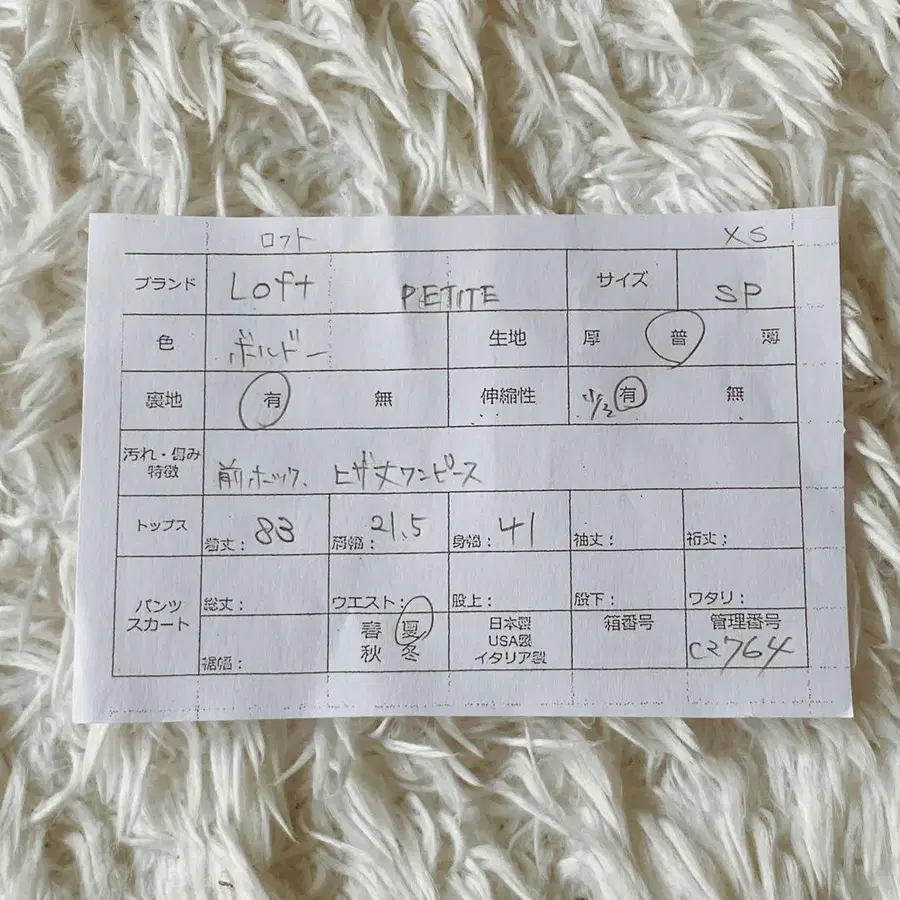 ロフト XS
ブランド Loft PETITE サイズ SP
色 ボルドー 生地 厚 普 薄
裏地 有 無 伸縮性 有 無
汚れ・傷み
特徴 前ホック、ヒザ丈ワンピース
トップス 着丈: 83 肩幅: 21.5 身幅: 41 袖丈: 裄丈:
パンツ
スカート 総丈: ウエスト: 股上: 股下: ワタリ:
裾幅: 春 夏
秋 冬
日本製
USA製
イタリア製
箱番号 管理番号
C2764